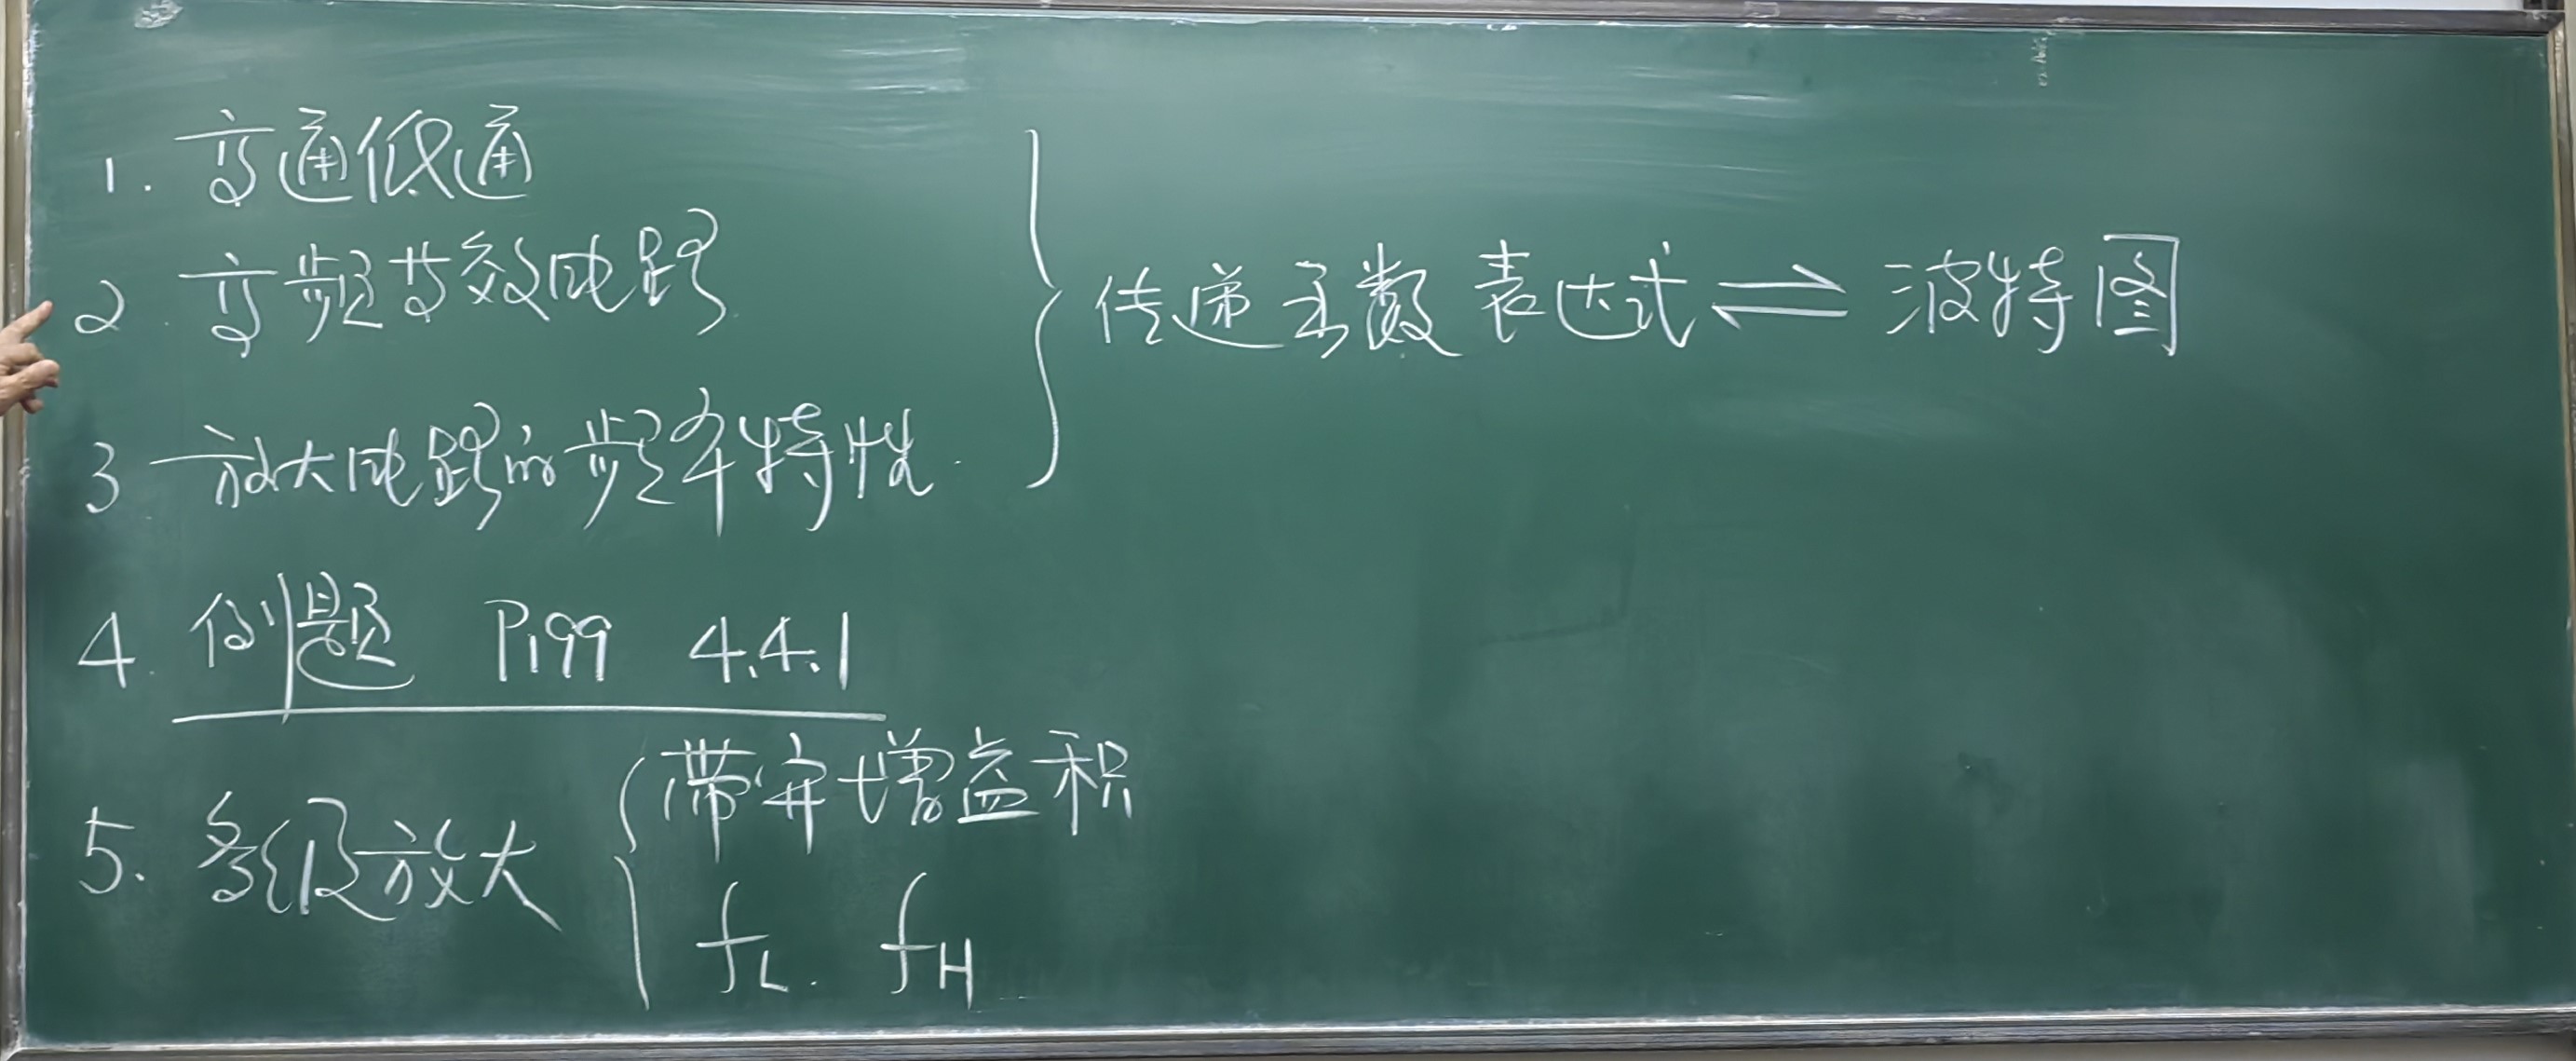 1. 高通低通
2. 高频等效电路
3 放大电路的频率特性.
传递函数表达式 ⇌ 波特图
4. 例题 P199 4.4.1
5. 多级放大
带宽增益积
fL. fH